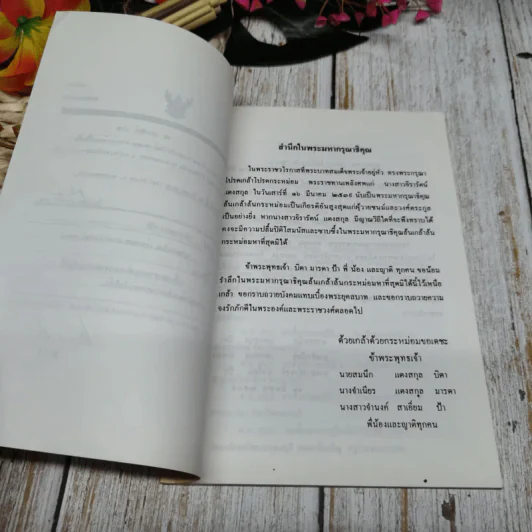 สำนึกในพระมหากรุณาธิคุณ
ในพระราชวโรกาสที่พระบาทสมเด็จพระเจ้าอยู่หัว ทรงพระกรุณา
โปรดเกล้าโปรดกระหม่อม พระราชทานเพลิงศพแก่ นางสาวธิรารัตน์
แตงสกุล ในวันเสาร์ที่ ๑๖ มีนาคม ๒๕๓๙ นับเป็นพระมหากรุณาธิคุณ
ล้นเกล้าล้นกระหม่อมเป็นเกียรติอันสูงสุดแก่ผู้วายชนม์และวงศ์ตระกูล
เป็นอย่างยิ่ง หากนางสาวธิรารัตน์ แตงสกุล มีญาณวิถีใดที่จะพึงทราบได้
คงจะมีความปลื้มปีติโสมนัสและซาบซึ้งในพระมหากรุณาธิคุณล้นเกล้าล้น
กระหม่อมหาที่สุดมิได้
ข้าพระพุทธเจ้า บิดา มารดา ป้า พี่ น้อง และญาติ ทุกคน ขอน้อม
รำลึกในพระมหากรุณาธิคุณล้นเกล้าล้นกระหม่อมหาที่สุดมิได้นี้ไว้เหนือ
เกล้า ขอกราบถวายบังคมแทบเบื้องพระยุคลบาท และขอกราบถวายความ
จงรักภักดีในพระองค์และพระราชวงศ์ตลอดไป
ด้วยเกล้าด้วยกระหม่อมขอเดชะ
ข้าพระพุทธเจ้า
นายสมนึก แตงสกุล บิดา
นางจำเนียร แตงสกุล มารดา
นางสาวจำนงค์ สาเอี่ยม ป้า
พี่น้องและญาติทุกคน